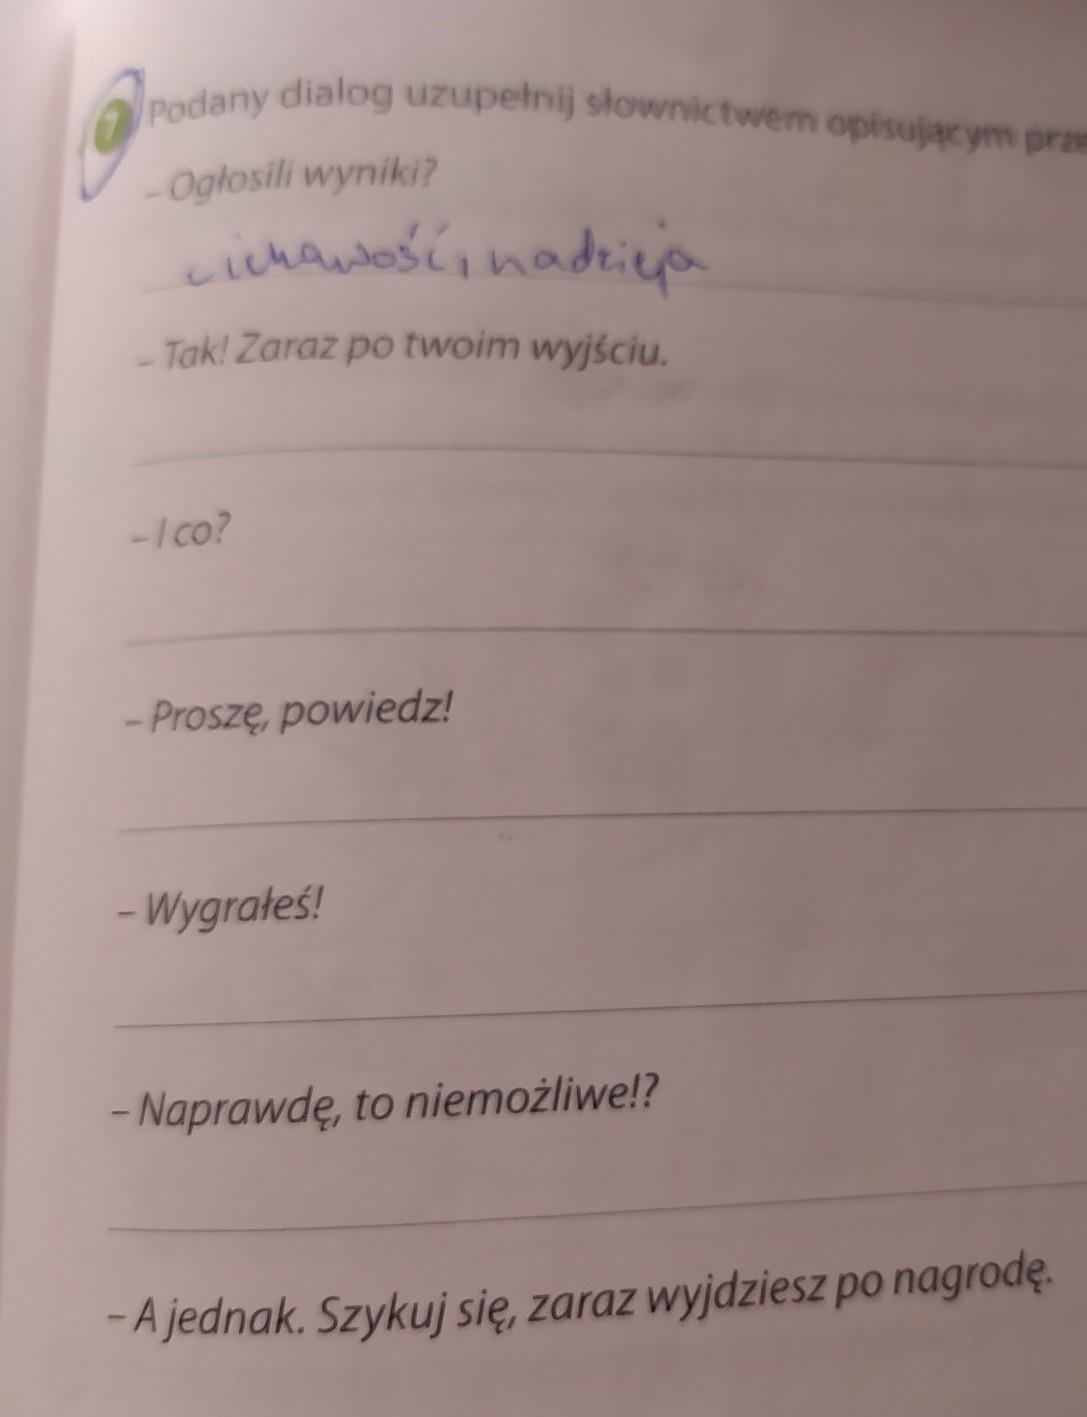 7 Podany dialog uzupełnij słownictwem opisującym prze
– Ogłosili wyniki?
ciekawość, nadzieja
– Tak! Zaraz po twoim wyjściu.
– I co?
– Proszę, powiedz!
– Wygrałeś!
– Naprawdę, to niemożliwe!?
– A jednak. Szykuj się, zaraz wyjdziesz po nagrodę.